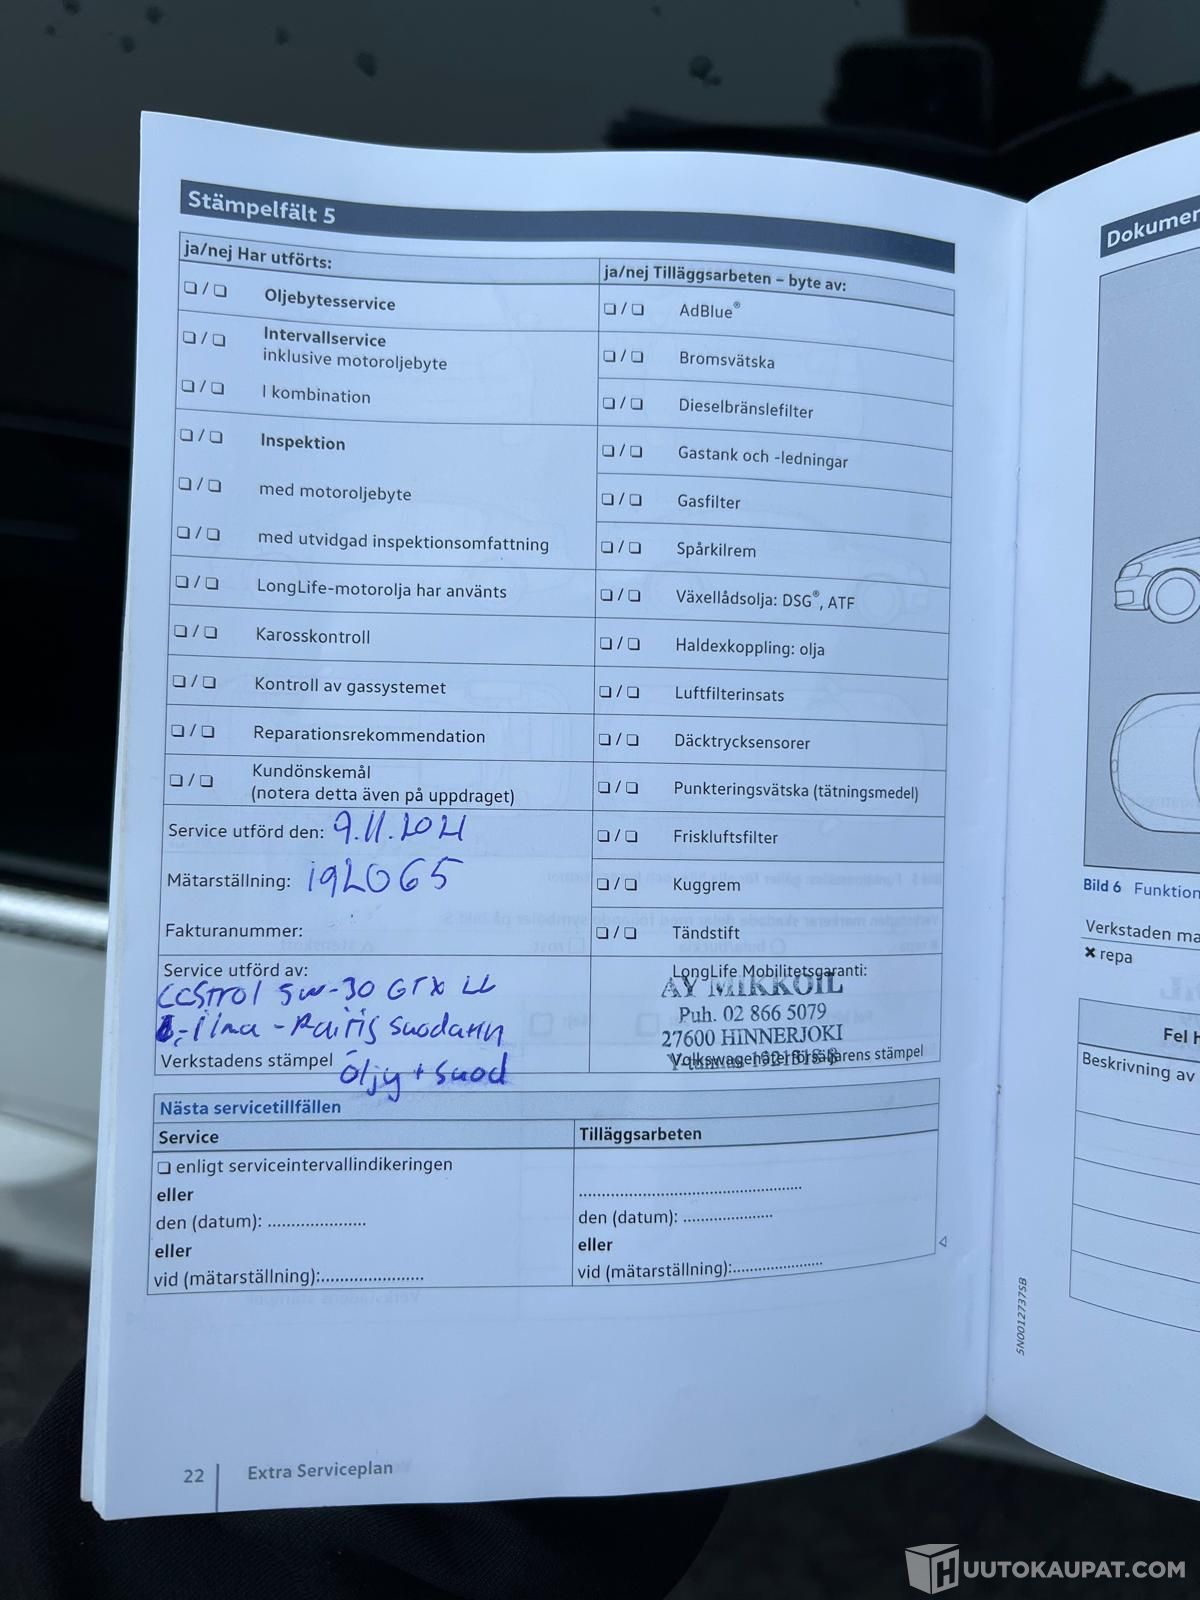 Stämpelfält 5
ja/nej Har utförts:
❏ / ❏ Oljebytesservice
❏ / ❏ Intervallservice
inklusive motoroljebyte
❏ / ❏ I kombination
❏ / ❏ Inspektion
❏ / ❏ med motoroljebyte
❏ / ❏ med utvidgad inspektionsomfattning
❏ / ❏ LongLife-motorolja har använts
❏ / ❏ Karosskontroll
❏ / ❏ Kontroll av gassystemet
❏ / ❏ Reparationsrekommendation
❏ / ❏ Kundönskemål
(notera detta även på uppdraget)
Service utförd den: 9.11.2021
Mätarställning: 192065
Fakturanummer:
Service utförd av:
Castrol 5W-30 GTX LL
ilma - Raitis suodatin
Verkstadens stämpel
Öljy + suod
ja/nej Tilläggsarbeten – byte av:
❏ / ❏ AdBlue®
❏ / ❏ Bromsvätska
❏ / ❏ Dieselbränslefilter
❏ / ❏ Gastank och -ledningar
❏ / ❏ Gasfilter
❏ / ❏ Spårkilrem
❏ / ❏ Växellådsolja: DSG®, ATF
❏ / ❏ Haldexkoppling: olja
❏ / ❏ Luftfilterinsats
❏ / ❏ Däcktrycksensorer
❏ / ❏ Punkteringsvätska (tätningsmedel)
❏ / ❏ Friskluftsfilter
❏ / ❏ Kuggrem
❏ / ❏ Tändstift
LongLife Mobilitetsgaranti:
AY MIKKOIL
Puh. 02 866 5079
27600 HINNERJOKI
Volkswagenåterförsäljarens stämpel
Nästa servicetillfällen
Service
❏ enligt serviceintervallindikeringen
eller
den (datum): .....................
eller
vid (mätarställning):......................
Tilläggsarbeten
................................................
den (datum): ...................
eller
vid (mätarställning):...................
22 Extra Serviceplan
5N0012737SB
Dokumen
Bild 6 Funktion
Verkstaden ma
✖ repa
Fel h
Beskrivning av
HUUTOKAUPAT.COM